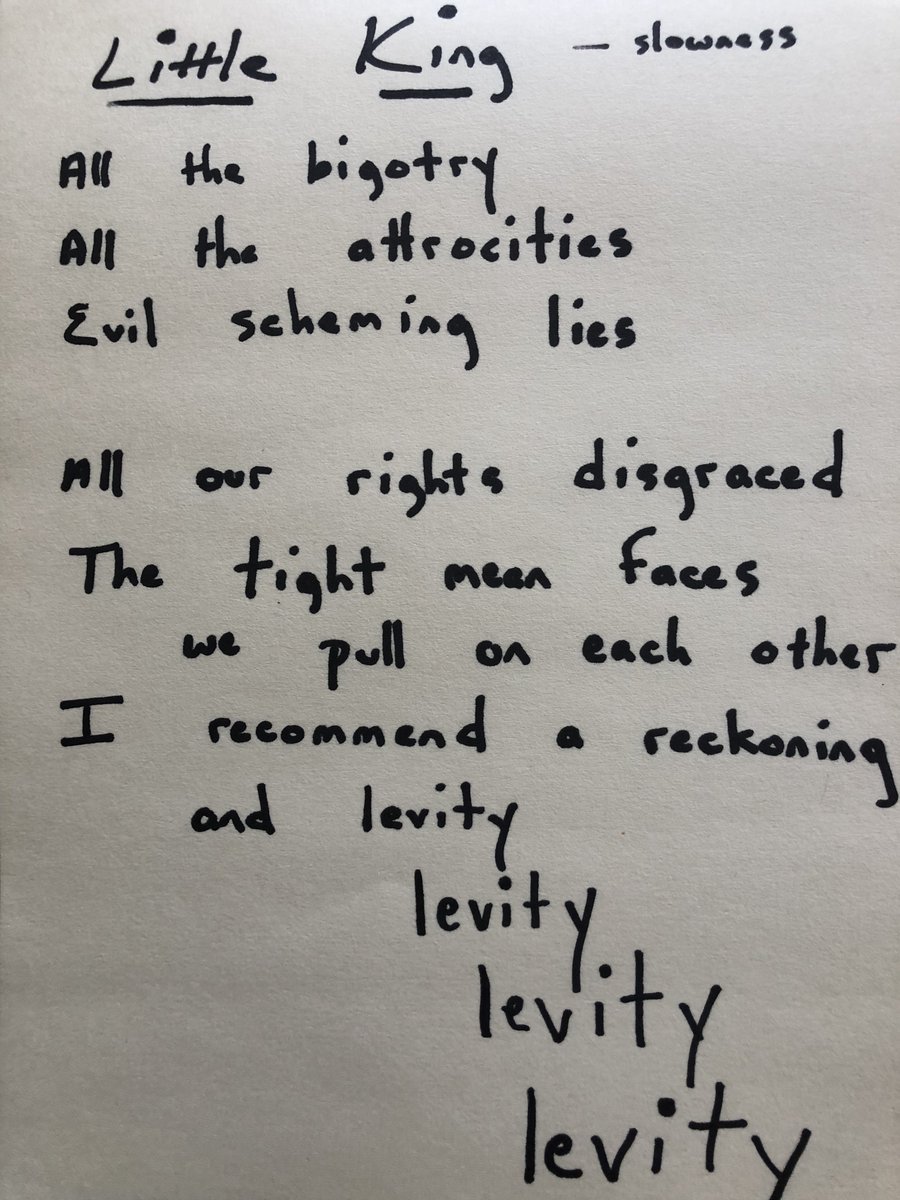 Little King – slowness
All the bigotry
All the attrocities
Evil scheming lies
All our rights disgraced
The tight mean faces
we pull on each other
I recommend a reckoning
and levity
levity
levity
levity